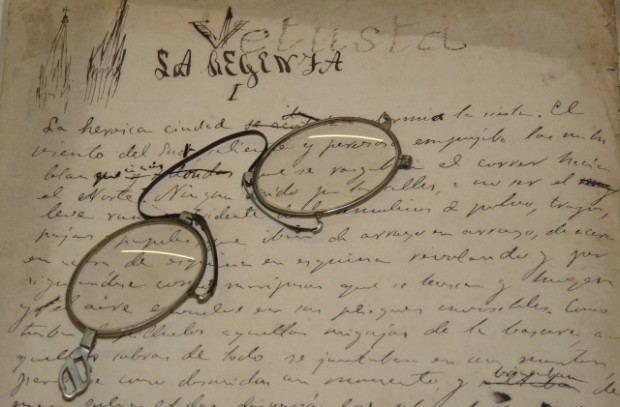 Vetusta
LA REGENTA
I
La heroica ciudad dormía la siesta. El
viento del Sur, caliente y perezoso empujaba las nubes
blanquecinas que se rasgaban al correr hacia
el Norte. Ningun ruido por calles, a no ser el
leve rumor estridente de los remolinos de polvo, trapos,
pajas y papeles que iban de arroyo en arroyo, de acera
en acera de esquina en esquina revolando y per
siguiendose como mariposas que se buscan y huyen
y el aire envuelve en sus pliegues invisibles. Como
turbas de pilluelos aquellas migajas de la basura, a
quellas sobras de todo se juntaban en un monton,
paraban se como dormidas un momento, y brincaban